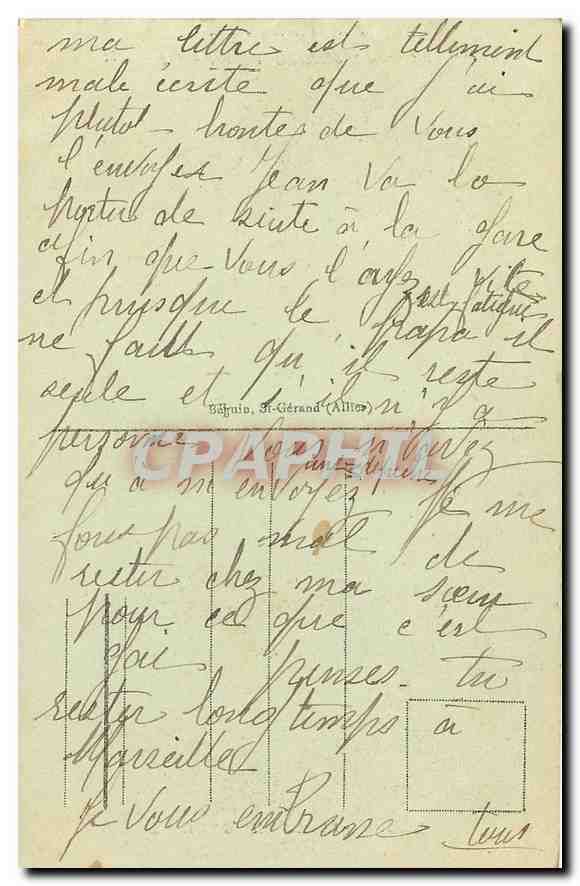 ma lettre est tellement
male écrite que j'ai
plutot hontes de vous
l'envoyer Jean va la
porter de suite à la gare
afin que vous l'ayez vite
et puisque le papa est fatigué il
ne faut qu'il reste
seule et s'il n'y a
Béguin, St-Gérand (Allier)
personne vous n'avez
CPAPHIL
qu'a m'envoyez une dépeche Je me
fous pas mal de
rester chez ma sœur
pour ce que c'est
gai penses-tu
rester longtemps à
Marseille
Je vous embrasse tous